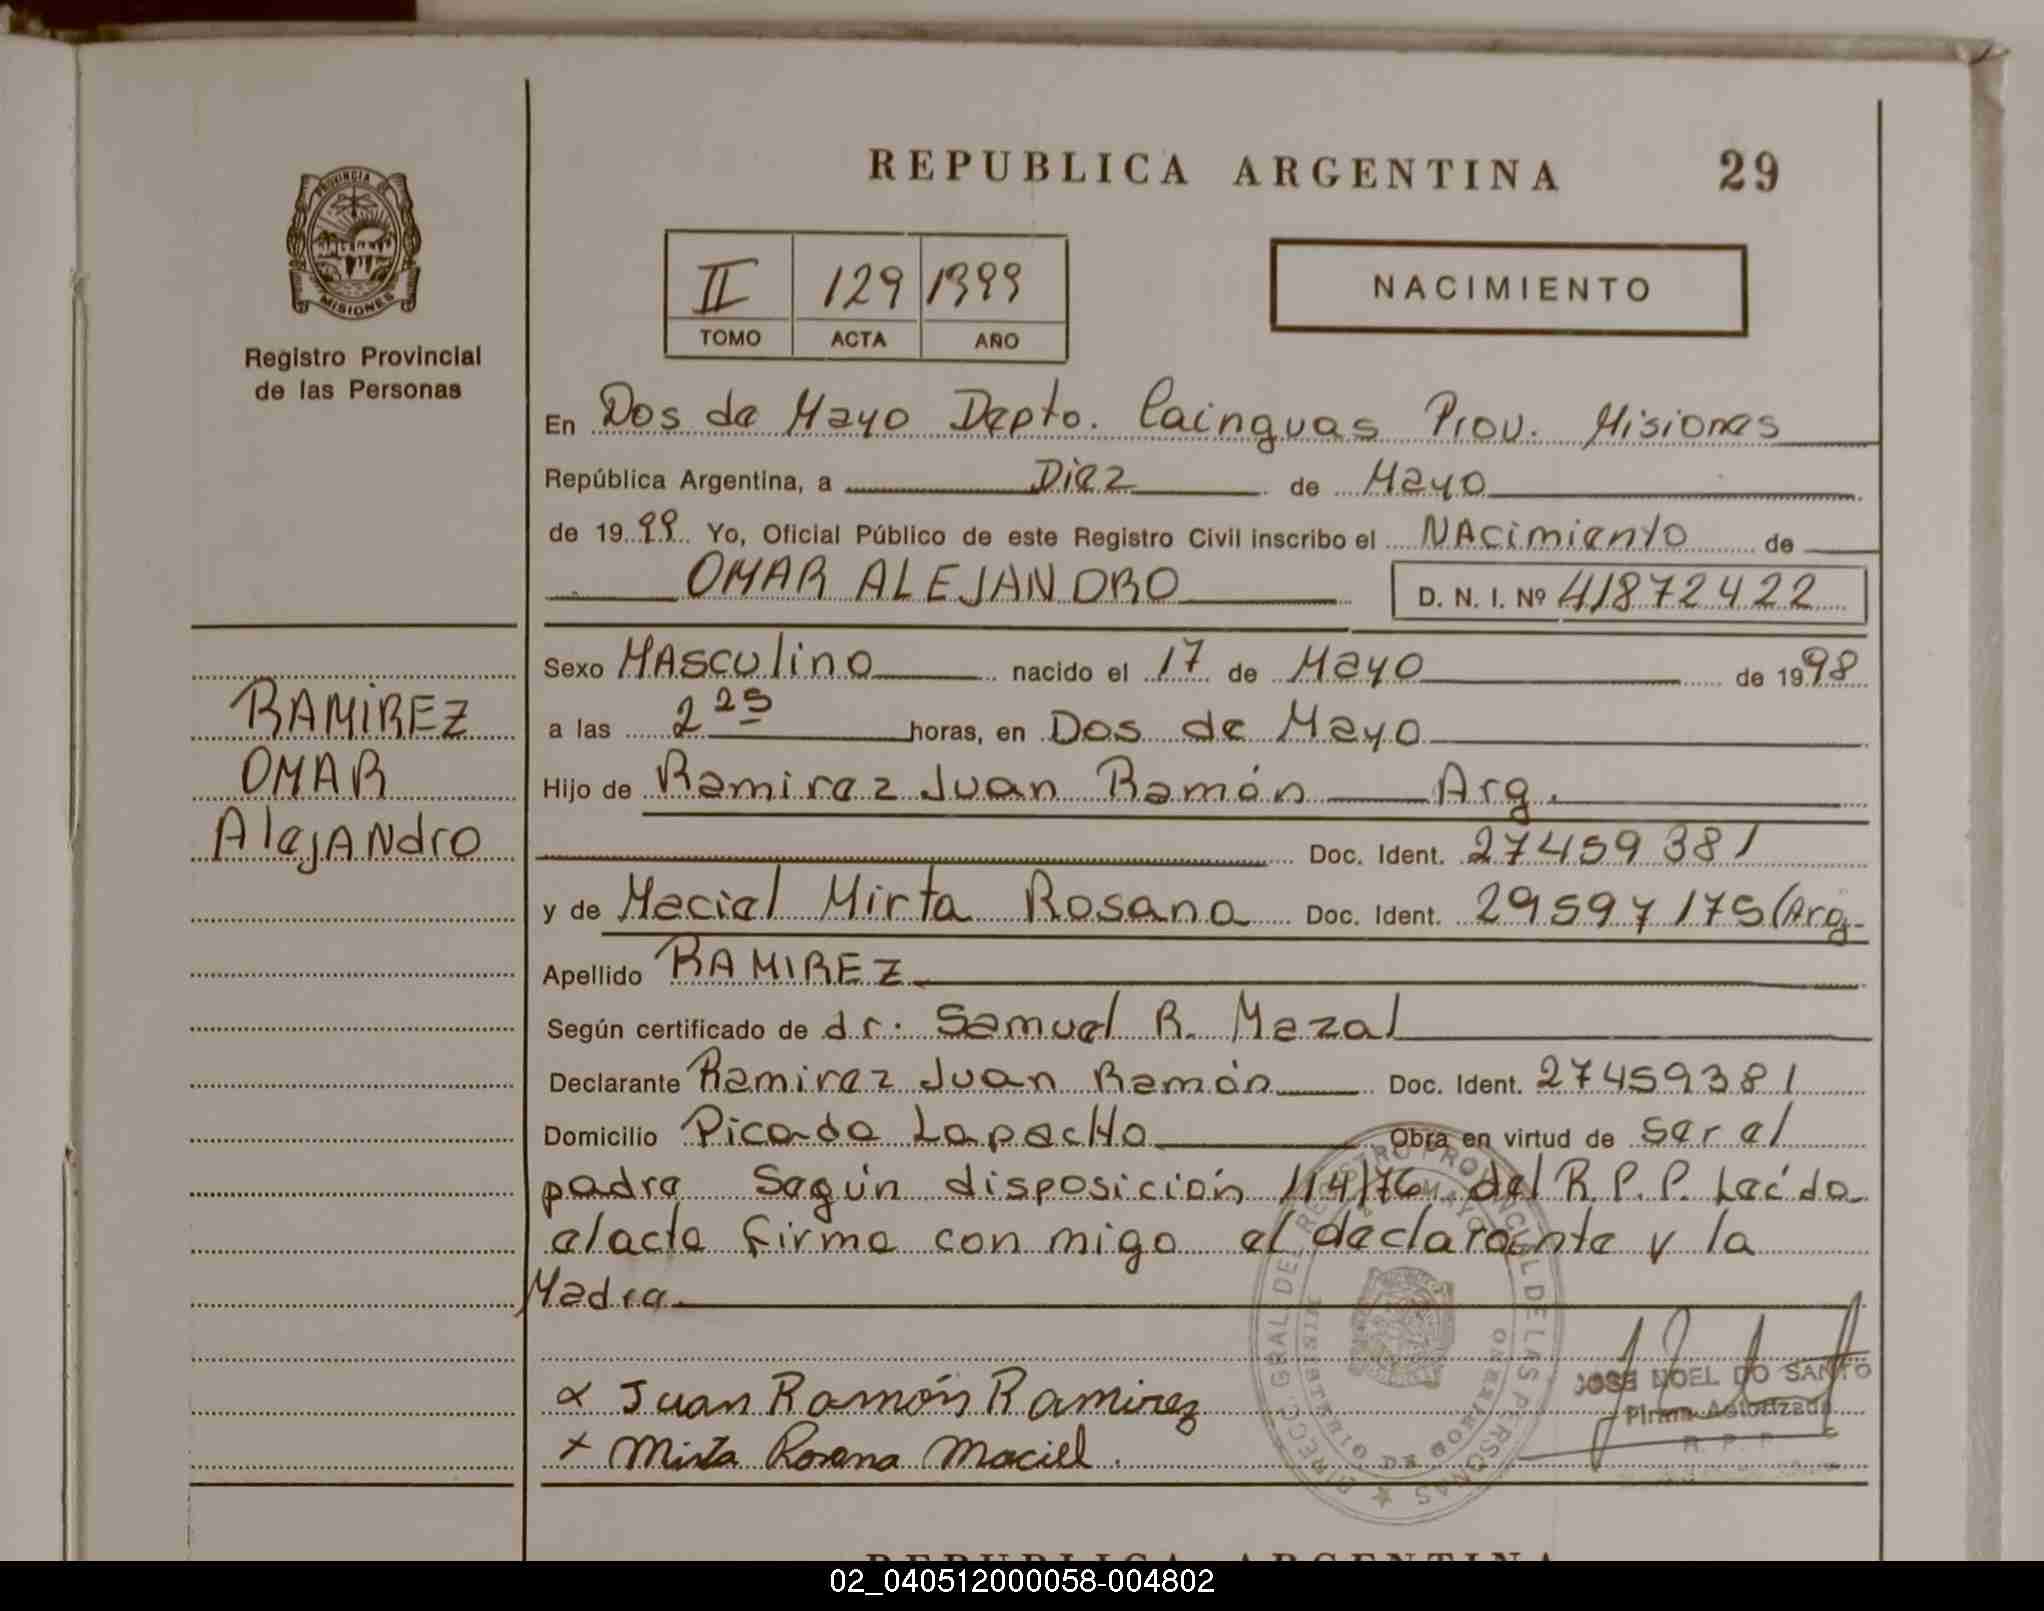 REPUBLICA ARGENTINA 29
PROVINCIA DE MISIONES
Registro Provincial
de las Personas
II 129 1999
TOMO ACTA AÑO
NACIMIENTO
En Dos de Mayo Depto. Cainguas Prov. Misiones
República Argentina, a Diez de Mayo
de 1999 Yo, Oficial Público de este Registro Civil inscribo el NAcimiento de
OMAR ALEJANDRO D. N. I. Nº 41872422
Sexo MAsculino nacido el 17 de Mayo de 1998
a las 2 25 horas, en Dos de Mayo
Hijo de Ramirez Juan Ramón Arg.
Doc. Ident. 27459381
y de Maciel Mirta Rosana Doc. Ident. 29597175 (Arg.
Apellido RAMIREZ
Según certificado de dr: Samuel R. Mazal
Declarante Ramirez Juan Ramón Doc. Ident. 27459381
Domicilio Picada Lapacho Obra en virtud de ser el
padre Según disposición 114/76 del R.P.P. Leída
el acta firma con migo el declaraente y la
Madre
RAMIREZ
OMAR
AlejANdro
x Juan Ramón Ramirez
x Mirta Rosana Maciel.
JOSE NOEL DO SANTO
Firma Autorizada
R. P. P.
DIRECC. GRAL. DEL REGISTRO PROVINCIAL DE LAS PERSONAS
REPUBLICA ARGENTINA
02_040512000058-004802